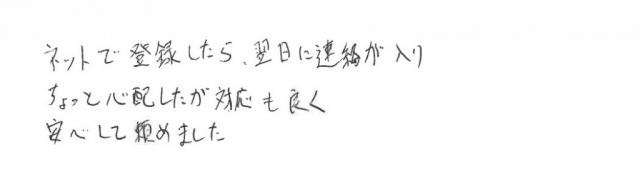 ネットで登録したら、翌日に連絡が入り
ちょっと心配したが対応も良く
安心して頼めました